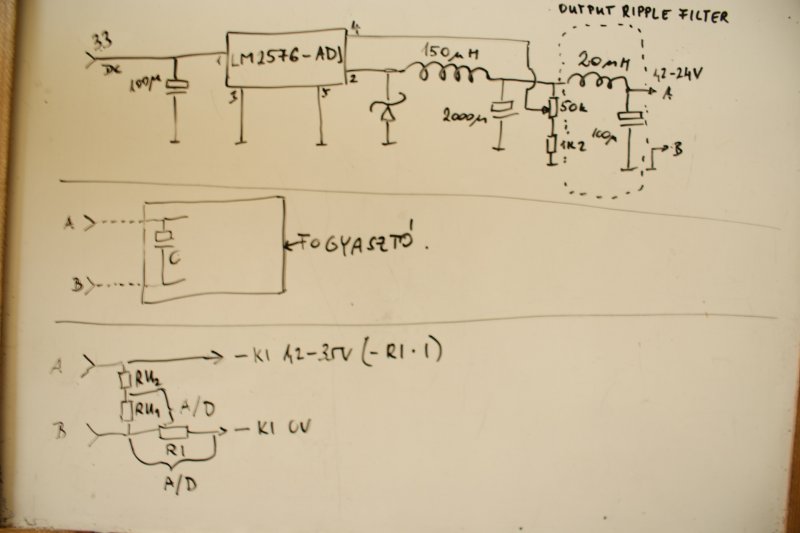 OUTPUT RIPPLE FILTER
33
DC
100µ
1
LM2576-ADJ
4
2
3
5
150µH
2000µ
50k
1k2
20µH
100µ
1,2-24V
A
B
A
B
C
FOGYASZTÓ.
A
RU2
RU1
A/D
B
R1
A/D
-KI 1,2-35V (-RI·I)
-KI 0V